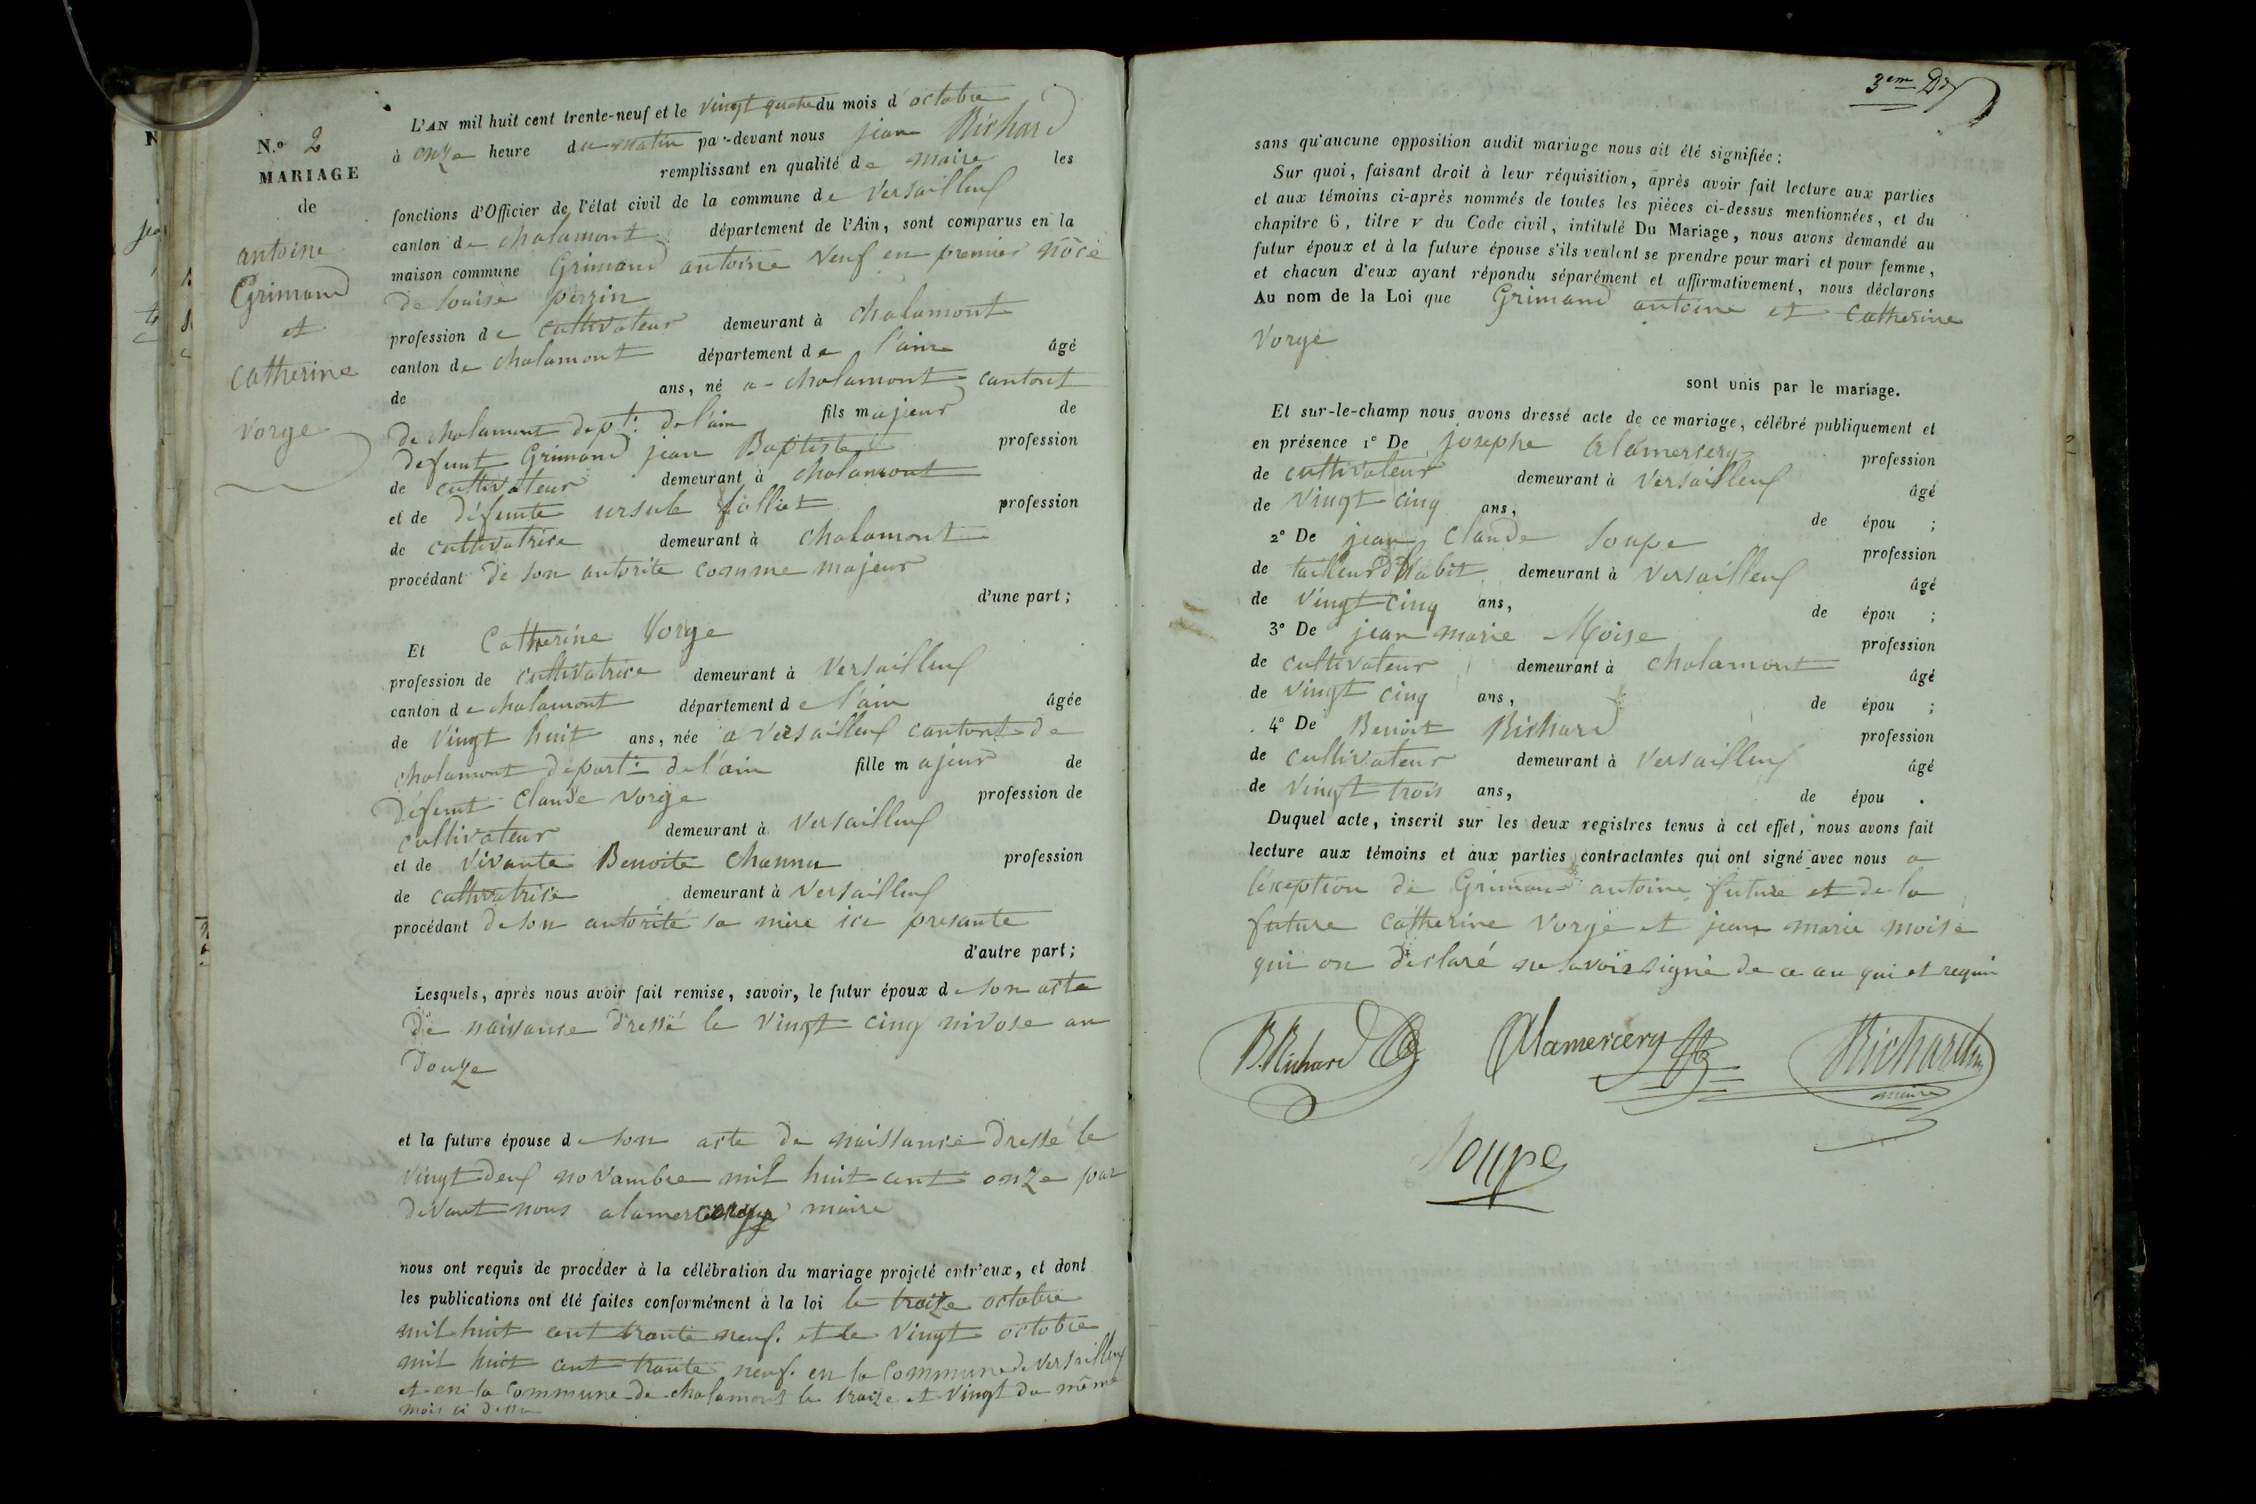 N.º 2
MARIAGE
de
antoine
Grimand
et
Catherine
Vorge
L'AN mil huit cent trente-neuf et le vingt quatre du mois d'octobre
à onze heure du matin par-devant nous jean Richard
remplissant en qualité de maire les
fonctions d'Officier de l'état civil de la commune de Versailleux
canton de chalamont département de l'Ain, sont comparus en la
maison commune Grimand antoine veuf en premier nôce
de Louise perrin
profession de cultivateur demeurant à chalamont
canton de chalamont département de l'ain âgé
de ans, né a chalamont cantont
de chalamont dept: de l'ain fils majeur de
defunt Grimand jean Baptiste profession
de cultivateur demeurant à chalamont
et de défunte ursule folliet profession
de cultivatrice demeurant à chalamont
procédant de son autorite comme majeur
d'une part ;
Et Catherine Vorge
profession de cultivatrice demeurant à Versailleux
canton de chalamont département de l'ain âgée
de vingt huit ans, née a Versailleux cantont de
chalamont depart: de l'ain fille majeur de
défunt Claude Vorge profession de
cultivateur demeurant à Versailleux
et de vivante Benoite channu profession
de cultivatrice demeurant à Versailleux
procédant de son autorité sa mère ice presante
d'autre part ;
Lesquels, après nous avoir fait remise, savoir, le futur époux de son acte
de naisance dressé le vingt cinq nivose an
douze
et la future épouse de son acte de naissance dressé le
vingt deux novambre mil huit cent onze par
devant nous alamercery maire
nous ont requis de procéder à la célébration du mariage projeté entr'eux, et dont
les publications ont été faites conformément à la loi le traize octobre
mil huit cent trante neuf. et le vingt octobre
mil huit cent trante neuf. en la Commune de Versailleux
et en la Commune de chalamont le traize et vingt du même
mois ci dessu
3em
sans qu'aucune opposition audit mariage nous ait été signifiée ;
Sur quoi, faisant droit à leur réquisition, après avoir fait lecture aux parties
et aux témoins ci-après nommés de toutes les pièces ci-dessus mentionnées, et du
chapitre 6, titre v du Code civil, intitulé Du Mariage, nous avons demandé au
futur époux et à la future épouse s'ils veulent se prendre pour mari et pour femme,
et chacun d'eux ayant répondu séparément et affirmativement, nous déclarons
Au nom de la Loi que Grimand antoine et Catherine
Vorge
sont unis par le mariage.
Et sur-le-champ nous avons dressé acte de ce mariage, célébré publiquement et
en présence 1º De josephe alamercery profession
de cultivateur demeurant à Versailleux âgé
de vingt cinq ans, de épou ;
2º De jean Claude Soupe profession
de tailleur d'habit demeurant à Versailleux âgé
de vingt cinq ans, de épou ;
3º De jean marie Moise profession
de cultivateur demeurant à chalamont âgé
de vingt cinq ans, de épou ;
4º De Benoit Richard profession
de cultivateur demeurant à Versailleux âgé
de vingt trois ans, de épou .
Duquel acte, inscrit sur les deux registres tenus à cet effet, nous avons fait
lecture aux témoins et aux parties contractantes qui ont signé avec nous a
l'exeption de Grimand antoine future et de la
future Catherine Vorge et jean marie moise
qui on déclaré ne savoir signé de ce an qui et requi
B. Richard Alamercery Richard
maire
Soupe